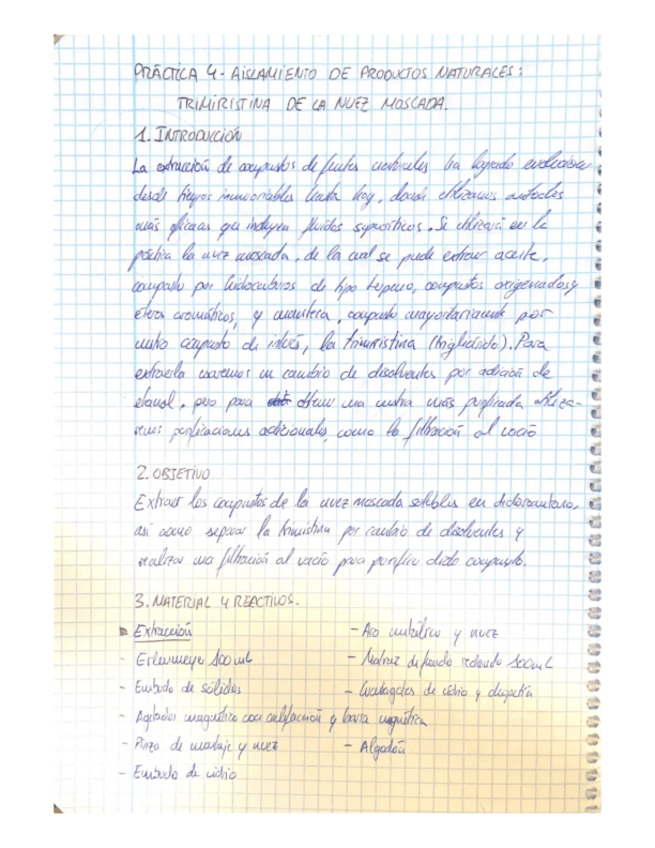 PRÁCTICA 4 - AISLAMIENTO DE PRODUCTOS NATURALES:
TRIMIRISTINA DE LA NUEZ MOSCADA.
1. INTRODUCCIÓN
La extracción de compuestos de fuentes naturales ha logrado evolucionar
desde tiempos inmemoriables hasta hoy, donde utilizamos métodos
más eficaces que incluyen fluidos supercríticos. Se utilizará en la
práctica la nuez moscada, de la cual se puede extraer aceite,
compuesto por hidrocarburos de tipo terpeno, compuestos oxigenados y
éteres aromáticos, y manteca, compuesto mayoritariamente por
nuestro compuesto de interés, la trimiristina (triglicérido). Para
extraerla usaremos un cambio de disolventes por adición de
etanol, pero para obtener una muestra más purificada utiliza-
remos purificaciones adicionales, como la filtración al vacío
2. OBJETIVO
Extraer los compuestos de la nuez moscada solubles en diclorometano,
así como separar la trimiristina por cambio de disolventes y
realizar una filtración al vacío para purificar dicho compuesto.
3. MATERIAL Y REACTIVOS.
Extracción
- Aro metálico y nuez
- Erlenmeyer 100 mL
- Matraz de fondo redondo 100 mL
- Embudo de sólidos
- Cuentagotas de vidrio y chupetín
- Agitador magnético con calefacción y barra magnética
- Pinza de montaje y nuez
- Algodón
- Embudo de vidrio